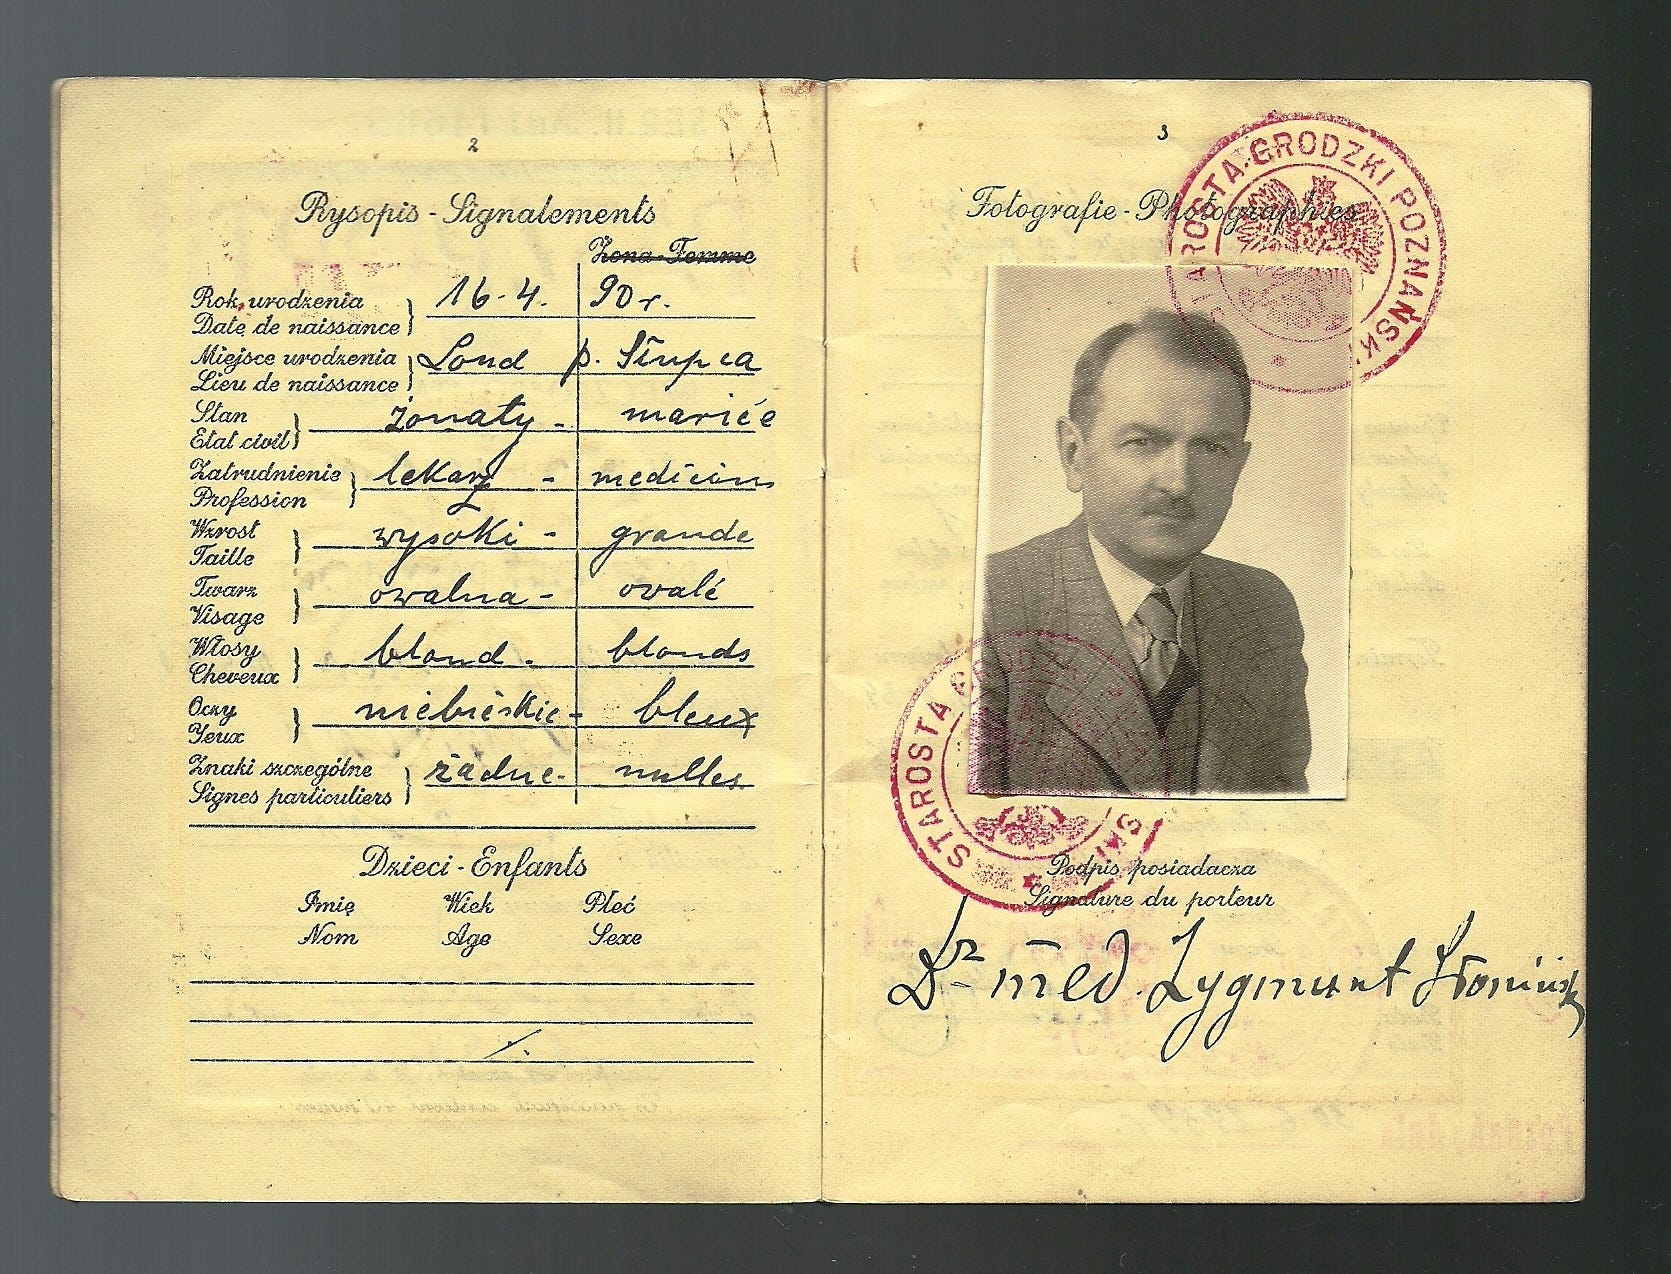 2
Rysopis - Signalements
Żona - Femme
Rok urodzenia
Date de naissance
16. 4. 90 r.
Miejsce urodzenia
Lieu de naissance
Lond p. Słupca
Stan
Etat civil
żonaty - mariée
Zatrudnienie
Profession
lekarz - medicin
Wzrost
Taille
wysoki - grande
Twarz
Visage
owalna - ovalé
Włosy
Cheveux
blond - blonds
Oczy
Yeux
niebieskie - bleux
Znaki szczególne
Signes particuliers
żadne - nulles
Dzieci - Enfants
Imię Wiek Płeć
Nom Age Sexe
3
Fotografie - Photographies
STAROSTA GRODZKI POZNAŃSKI
STAROSTA GRODZKI
SKI
Podpis posiadacza
Signature du porteur
Dr med. Zygmunt